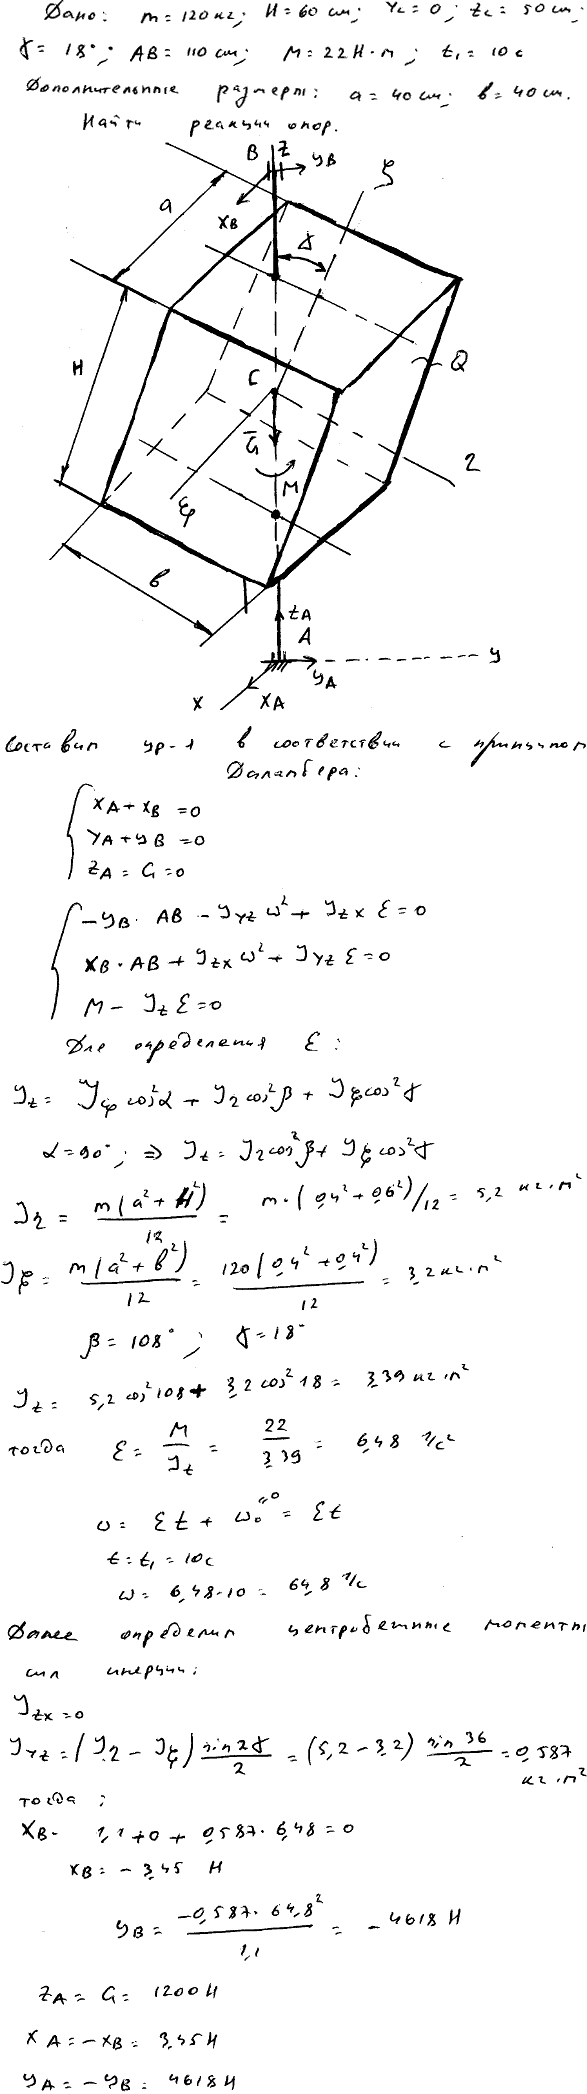 Дано: m = 120 кг; H = 60 см; Yc = 0; zc = 50 см;
γ = 18°; AB = 110 см; M = 22 Н·м; t₁ = 10 с
Дополнительные размеры: a = 40 см; в = 40 см.
Найти реакции опор.
B z yB
a xB γ ζ
H Q
C
G̅ 2
M
ξ
в
zA
A y
yA
x xA
Составим ур-я в соответствии с принципом
Даламбера:
XA + XB = 0
YA + YB = 0
ZA = G = 0
-YB · AB - Jyz ω² + Jzx ε = 0
XB · AB + Jzx ω² + Jyz ε = 0
M - Jz ε = 0
Для определения ε:
Jz = Jξ cos²α + J2 cos²β + Jζ cos²γ
α = 90°; ⇒ Jz = J2 cos²β + Jζ cos²γ
J2 = m(a² + H²)/12 = m·(0,4² + 0,6²)/12 = 5,2 кг·м²
Jζ = m(a² + в²)/12 = 120(0,4² + 0,4²)/12 = 3,2 кг·м²
β = 108°; γ = 18°
Jz = 5,2 cos²108 + 3,2 cos²18 = 3,39 кг·м²
тогда ε = M/Jz = 22/3,39 = 6,48 1/с²
ω = εt + ω₀ = εt
t = t₁ = 10с
ω = 6,48·10 = 64,8 1/с
Далее определим центробежные моменты
сил инерции:
Jzx = 0
Jyz = (J2 - Jζ) sin2γ/2 = (5,2 - 3,2) sin 36/2 = 0,587
кг·м²
тогда;
XB· 1,1 + 0 + 0,587·6,48 = 0
XB = - 3,45 Н
YB = -0,587·64,8²/1,1 = - 4618 Н
ZA = G = 1200 Н
XA = -XB = 3,45 Н
YA = -YB = 4618 Н